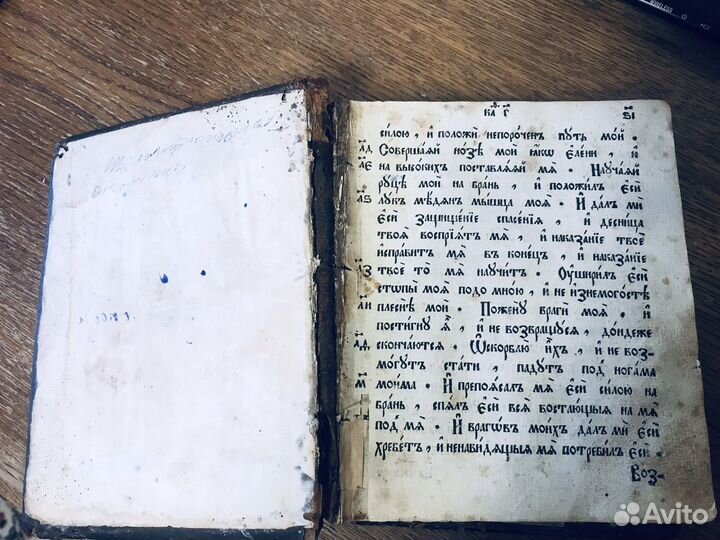 WIRELESS
ка҃ г҃ ѕ҃і
си́лою , и҆ положѝ непоро́ченъ пꙋ́ть мо́й .
л҃д Соверша́ѧй но́зѣ мои̑ ꙗ҆́кѡ є҆ле́ни , и҆
л҃є на высо́кихъ поставлѧ́ѧй мѧ̀ . Наꙋча́ѧй
рꙋ́цѣ мои̑ на бра́нь , и҆ положи́лъ є҆сѝ
л҃ѕ лꙋ́къ мѣ́дѧнъ мы̑шца моѧ̑ . И҆ да́лъ мѝ
є҆сѝ защище́нїе спасе́нїѧ , и҆ десни́ца
твоѧ̀ воспрїѧ́тъ мѧ̀ , и҆ наказа́нїе твоѐ
и҆спра́витъ мѧ̀ въ коне́цъ , и҆ наказа́нїе
л҃з твоѐ то̀ мѧ̀ наꙋчи́тъ . Оу҆шири́лъ є҆сѝ
стѡпы̀ моѧ̑ подо мно́ю , и҆ не и҆знемого́стѣ
л҃и плеснѣ̀ мои̑ . Поженꙋ̀ враги̑ моѧ̑ , и҆
пости́гнꙋ ѧ҆̀ , и҆ не возвращꙋ́сѧ , до́ндеже
л҃ѳ сконча́ютсѧ . Ѡ҆скорблю̀ и҆́хъ , и҆ не воз-
мо́гꙋтъ ста́ти , падꙋ́тъ под̾ нога́ма
м҃ мои́ма . И҆ препоѧ́салъ мѧ̀ є҆сѝ си́лою на
бра́нь , спѧ́лъ є҆сѝ всѧ̑ востаю́щыѧ на мѧ̀
под̾ мѧ̀ . И҆ врагѡ́въ мои́хъ да́лъ мѝ є҆сѝ
хребе́тъ , и҆ ненави́дѧщыѧ мѧ̀ потреби́лъ є҆сѝ .
Воз-
Avito